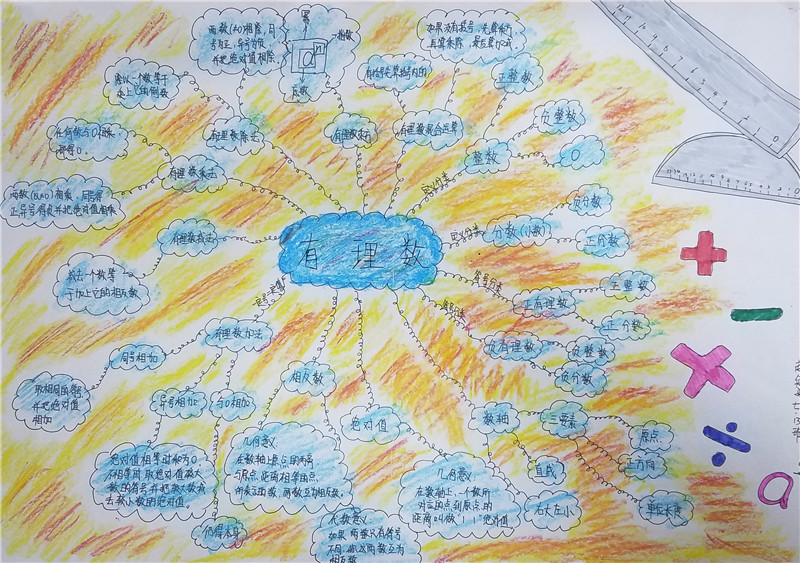 两数(≠0)相除,同
号为正,异号为负
并把绝对值相除
幂
指数
aⁿ
底数
如果没有括号,先算乘方
再算乘除,最后算加减
有括号先算括号内的
正整数
负整数
0
整数
定义分类
除以一个数等于
乘上它的倒数
任何数与0相乘
都得0
两数(≠0)相乘,同号得
正异号得负并把绝对值相乘
有理数除法
有理数乘方
有理数混合运算
有理数乘法
有理数减法
减去一个数等
于加上它的相反数
有理数
定义分类
分数(小数)
负分数
正分数
符号分类
正有理数
正整数
正分数
负有理数
负整数
负分数
有理数加法
同号相加
取相同的符号
并把绝对值
相加
异号相加
与0相加
绝对值相等时和为0
仍得本身
相反数
几何意义
代数意义
如果两数只有符号
不同,那么两数互为
相反数
绝对值
几何意义
在数轴上,一个数所
对应的点到原点的
距离叫做
绝对值
数轴
三要素
原点
正方向
单位长度
直线
右大左小
+
−
×
÷
a